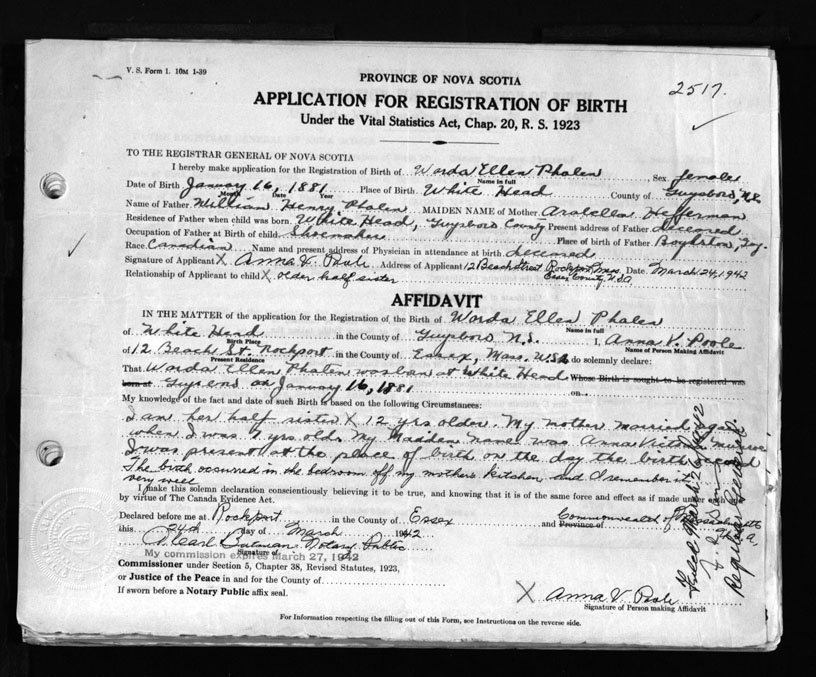 V. S. Form 1. 10M 1-39
PROVINCE OF NOVA SCOTIA
2517.
APPLICATION FOR REGISTRATION OF BIRTH
Under the Vital Statistics Act, Chap. 20, R. S. 1923
TO THE REGISTRAR GENERAL OF NOVA SCOTIA
I hereby make application for the Registration of Birth of Worda Ellen Phalen Sex female
Name in full
Date of Birth January 16, 1881 Place of Birth White Head County of Guysboro, N.S.
Month Date Year
Name of Father William Henry Phalen MAIDEN NAME of Mother Arabella Hefferman
Residence of Father when child was born White Head, Guysboro County Present address of Father deceased
Occupation of Father at Birth of child Shoemaker Place of birth of Father Boylston, Guy.
Race Canadian Name and present address of Physician in attendance at birth deceased
Signature of Applicant X Anna V. Poole Address of Applicant 12 Beach Street Rockport, Mass. Date March 24, 1942
Essex County U.S.A
Relationship of Applicant to child X older half sister
AFFIDAVIT
IN THE MATTER of the application for the Registration of the Birth of Worda Ellen Phalen
Name in full
of White Head in the County of Guysboro N.S. I, Anna V. Poole
Birth Place Name of Person Making Affidavit
of 12 Beach St. Rockport in the County of Essex, Mass. USA do solemnly declare:
Present Residence
That Worda Ellen Phalen was born at White Head Whose Birth is sought to be registered was
born at on January 16, 1881 on
My knowledge of the fact and date of such Birth is based on the following Circumstances:
I am her half sister X 12 yrs older. My mother married again
when I was yrs old. My Madden name was Anna Victoria
I was present at the place of birth on the day the birth occured
The birth occurred in the bedroom off my mothers kitchen and I remember it
very well
I make this solemn declaration conscientiously believing it to be true, and knowing that it is of the same force and effect as if made under oath
by virtue of The Canada Evidence Act.
Declared before me at Rockport in the County of Essex and Province of Commonwealth of Massachusetts
U.S.A
this 24th day of March 1942
Earl Notary Public
Signature of
My commission expires March 27, 1942
Commissioner under Section 5, Chapter 38, Revised Statutes, 1923,
or Justice of the Peace in and for the County of
If sworn before a Notary Public affix seal.
X Anna V. Poole
Signature of Person making Affidavit
For Information respecting the filling out of this Form, see Instructions on the reverse side.
Filed March 26, 1942
Registrar General